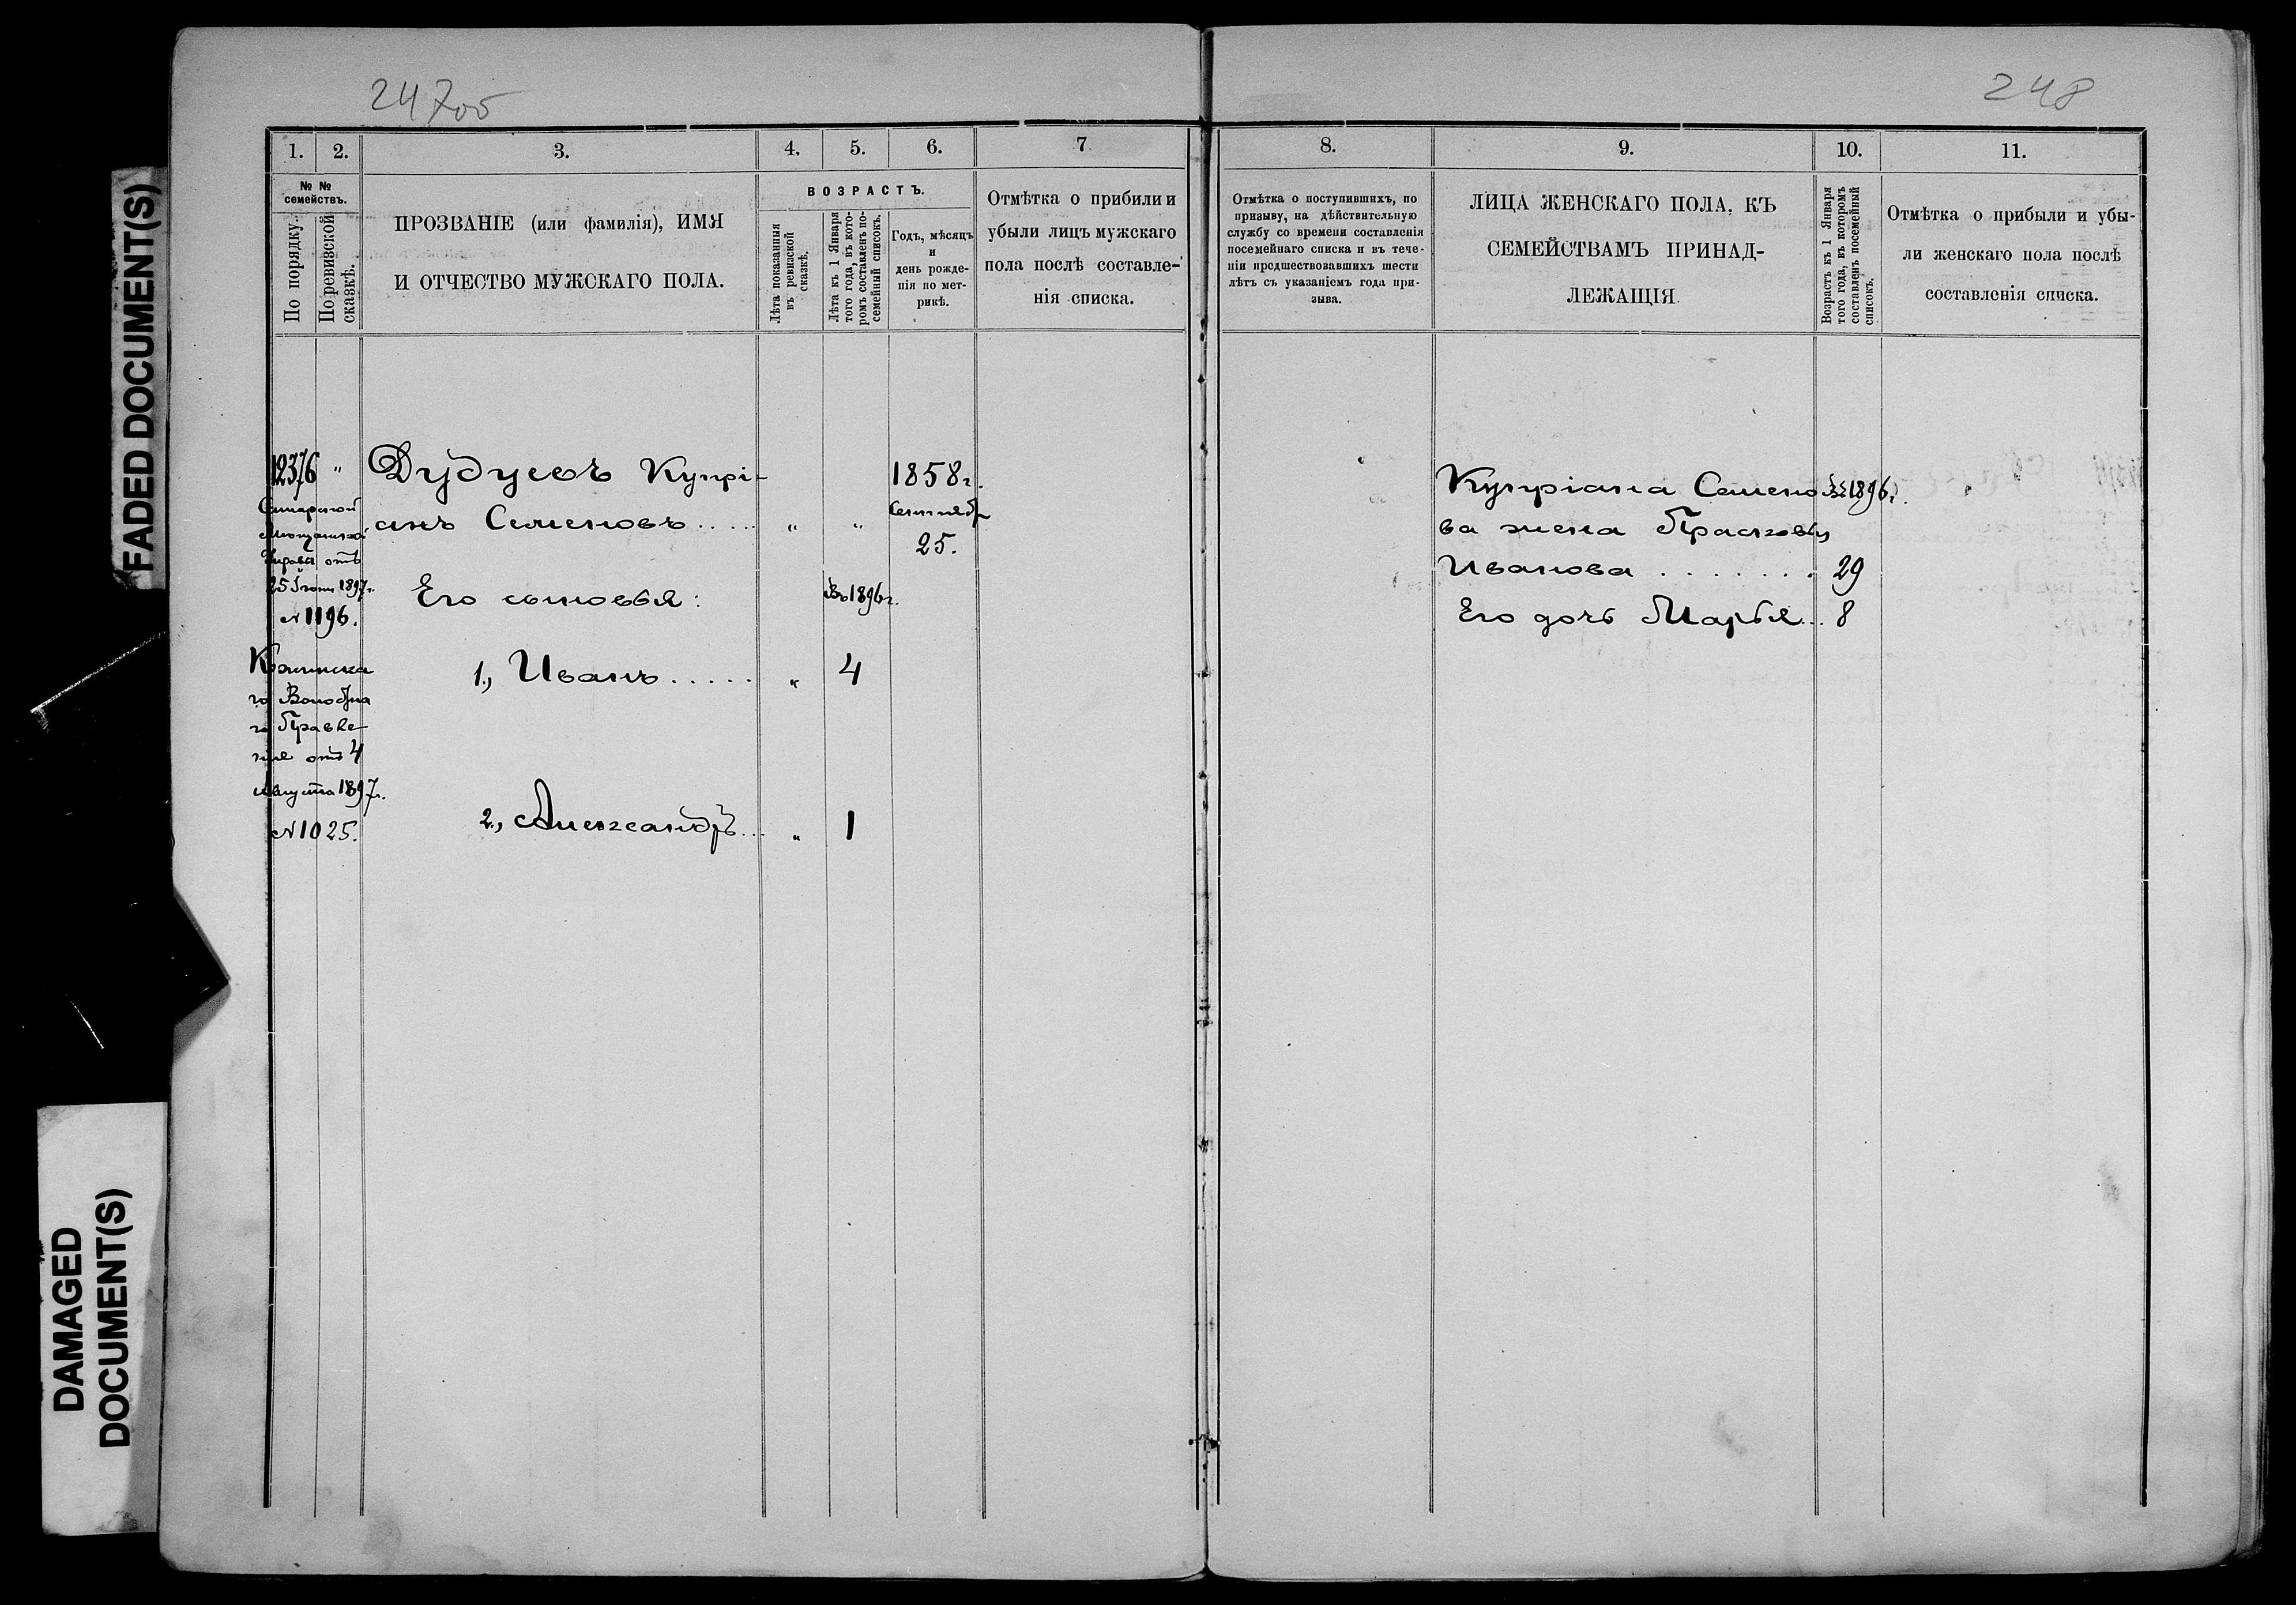 FADED DOCUMENT(S)
DAMAGED
DOCUMENT(S)
247об
1. 2. 3. 4. 5. 6. 7
№ №
семействъ.
По порядку.
По ревизской
сказкѣ.
ПРОЗВАНІЕ (или фамилія), ИМЯ
И ОТЧЕСТВО МУЖСКАГО ПОЛА.
ВОЗРАСТЪ.
Лѣта показанныя
въ ревизской
сказкѣ.
Лѣта къ 1 Января
того года, въ кото-
ромъ составленъ по-
семейный списокъ.
Годъ, мѣсяцъ
и
день рожде-
нія по мет-
рикѣ.
Отмѣтка о прибили и
убыли лицъ мужскаго
пола послѣ составле-
нія списка.
12376 "
Самарской
Мѣщанской
Управы отъ
25 Іюня 1897г.
№ 1196.
го Волостна
го Правле-
нія отъ 4
Августа 1897г.
№ 1025.
Дудусовъ Купрі-
анъ Семеновъ..... " "
1858г.
Сентября
25.
Его сыновья: Въ 1896г.
1., Иванъ..... " 4
2., Александръ... " 1
248
8. 9. 10. 11.
Отмѣтка о поступившихъ, по
призыву, на дѣйствительную
службу со времени составленія
посемейнаго списка и въ тече-
ніи предшествовавшихъ шести
лѣтъ съ указаніемъ года при-
зыва.
ЛИЦА ЖЕНСКАГО ПОЛА, КЪ
СЕМЕЙСТВАМЪ ПРИНАД-
ЛЕЖАЩІЯ
Возрастъ къ 1 Января
того года, въ которомъ
составленъ посемейный
списокъ.
Отмѣтка о прибыли и убы-
ли женскаго пола послѣ
составленія списка.
Купріана Семено- Въ 1896г.
ва жена Прасковья
Иванова ....... 29
Его дочь Марья... 8